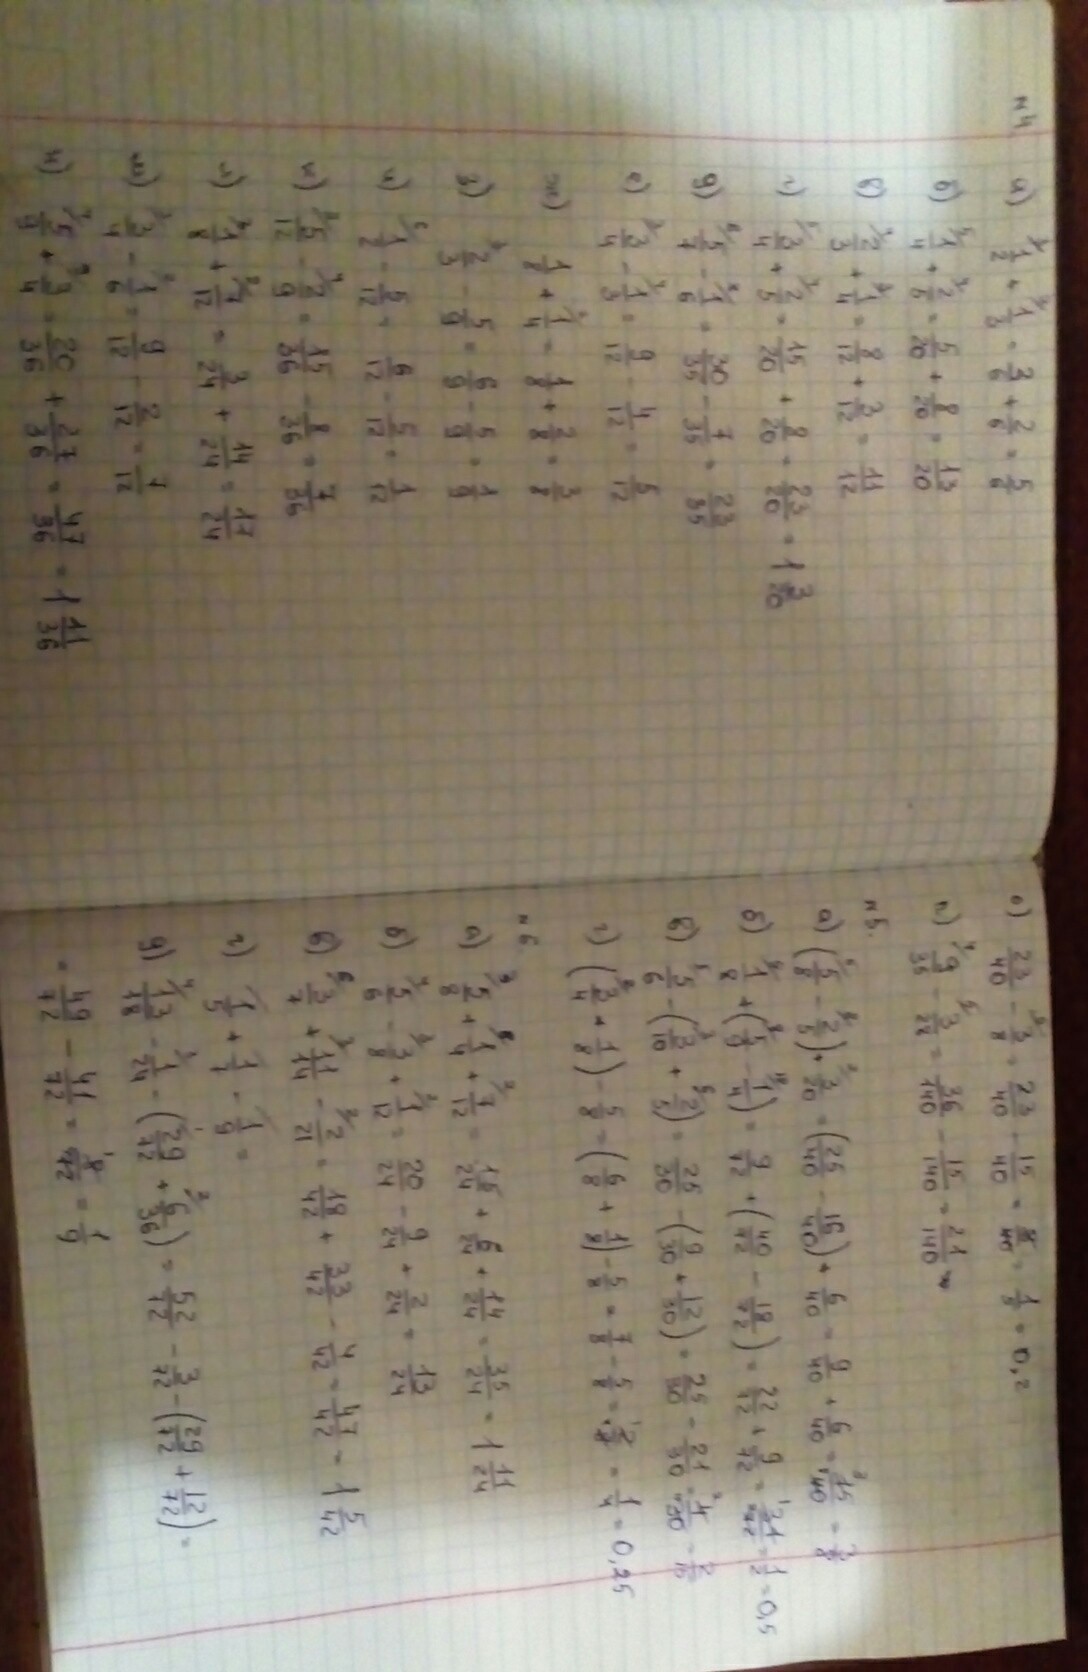 N4
а) 1/2 + 1/3 = 3/6 + 2/6 = 5/6
б) 1/4 + 2/5 = 5/20 + 8/20 = 13/20
в) 2/3 + 1/4 = 8/12 + 3/12 = 11/12
г) 3/4 + 2/5 = 15/20 + 8/20 = 23/20 = 1 3/20
д) 5/7 - 1/6 = 30/35 - 7/35 = 23/35
е) 3/4 - 1/3 = 9/12 - 4/12 = 5/12
ж) 1/8 + 1/4 = 1/8 + 2/8 = 3/8
з) 2/3 - 5/9 = 6/9 - 5/9 = 1/9
и) 1/2 - 5/12 = 6/12 - 5/12 = 1/12
к) 5/12 - 2/9 = 15/36 - 8/36 = 7/36
л) 1/8 + 7/12 = 3/24 + 14/24 = 17/24
м) 3/4 - 1/6 = 9/12 - 2/12 = 7/12
н) 5/9 + 3/4 = 20/36 + 27/36 = 47/36 = 1 11/36
о) 23/40 - 3/8 = 23/40 - 15/40 = 8/40 = 1/5 = 0,2
п) 9/35 - 3/28 = 36/140 - 15/140 = 21/140
N5.
а) (5/8 - 2/5) + 3/20 = (25/40 - 16/40) + 6/40 = 9/40 + 6/40 = 15/40 = 3/8
б) 1/8 + (5/9 - 1/4) = 9/72 + (40/72 - 18/72) = 22/72 + 9/72 = 31/72 = 1/2 = 0,5
в) 5/6 - (3/10 + 2/5) = 25/30 - (9/30 + 12/30) = 25/30 - 21/30 = 4/30 = 2/15
г) (3/4 + 1/8) - 5/8 = (6/8 + 1/8) - 5/8 = 7/8 - 5/8 = 2/8 = 1/4 = 0,25
N6.
а) 5/8 + 1/4 + 7/12 = 15/24 + 6/24 + 14/24 = 35/24 = 1 11/24
б) 5/6 - 3/8 + 1/12 = 20/24 - 9/24 + 2/24 = 13/24
в) 3/7 + 11/14 - 2/21 = 18/42 + 33/42 - 4/42 = 47/42 = 1 5/42
г) 1/5 + 1/7 - 1/9 =
д) 13/18 - 1/24 - (29/72 + 6/36) = 52/72 - 3/72 - (29/72 + 12/72) =
= 49/72 - 41/72 = 8/72 = 1/9